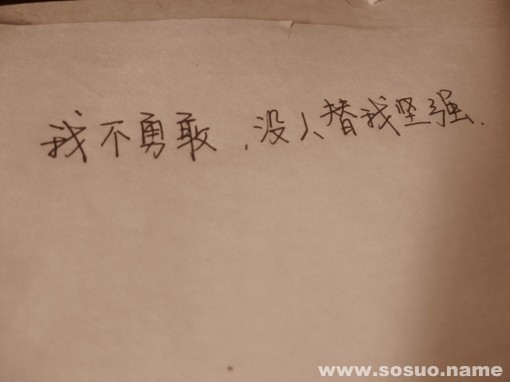 我不勇敢,没人替我坚强.
www.sosuo.name